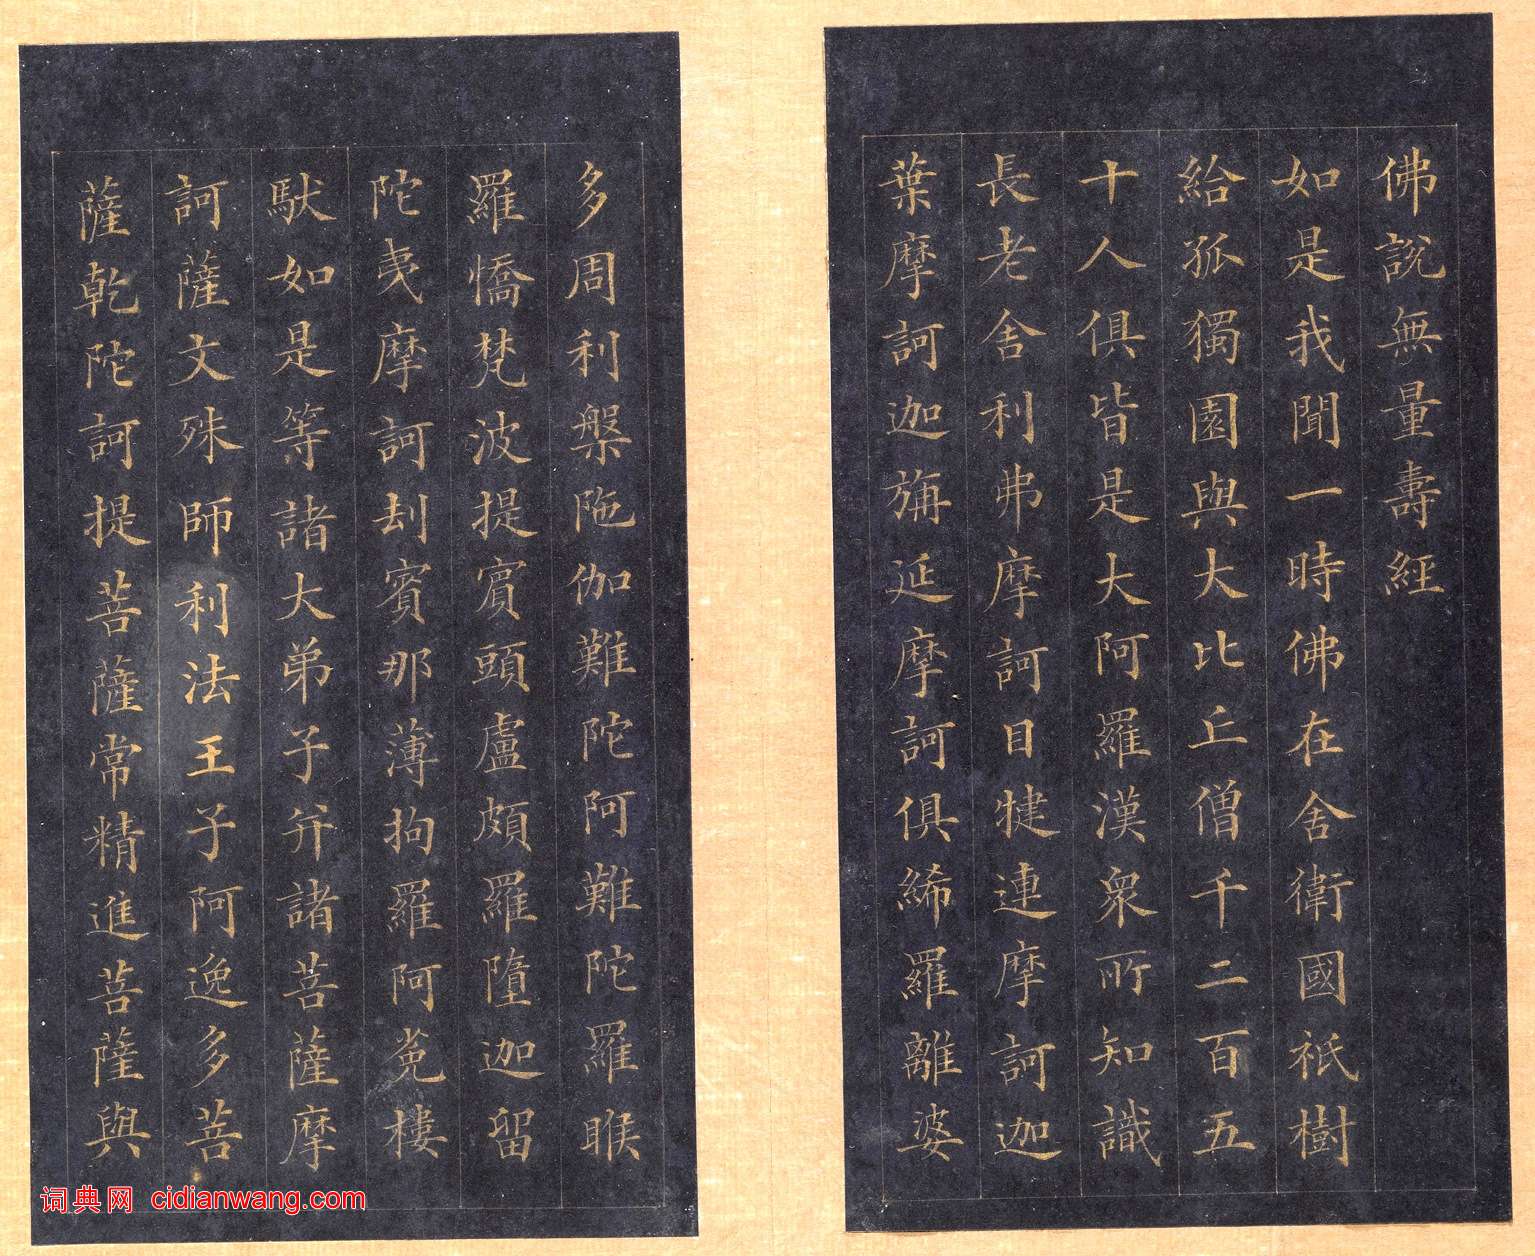 佛說無量壽經
如是我聞一時佛在舍衛國祇樹
給孤獨園與大比丘僧千二百五
十人俱皆是大阿羅漢衆所知識
長老舍利弗摩訶目犍連摩訶迦
葉摩訶迦旃延摩訶俱絺羅離婆
多周利槃陁伽難陀阿難陀羅睺
羅憍梵波提賓頭盧頗羅墮迦留
陀夷摩訶刦賓那薄拘羅阿㝹樓
馱如是等諸大弟子并諸菩薩摩
訶薩文殊師利法王子阿逸多菩
薩乾陀訶提菩薩常精進菩薩與
词典网 cidianwang.com